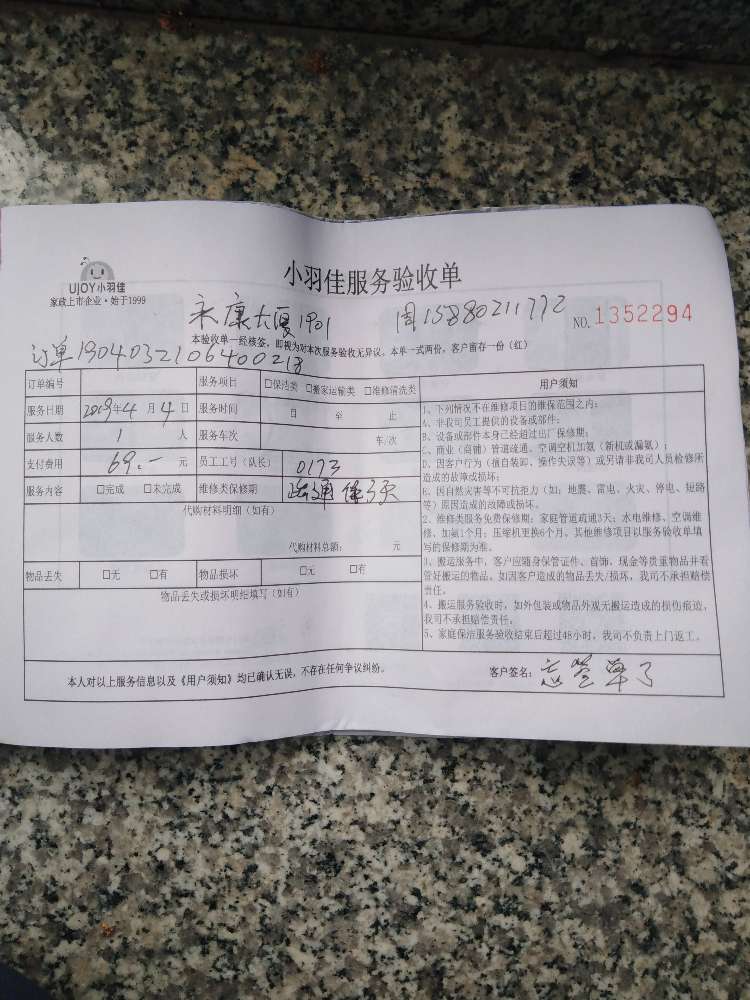 UJOY小羽佳
家政上市企业·始于1999
小羽佳服务验收单
永康大厦1901 周15880211772
NO.1352294
本验收单一经核签，即视为对本次服务验收无异议。本单一式两份，客户留存一份（红）
订单1904032106400213
订单编号 服务项目 □保洁类 □搬家运输类 □维修清洗类
服务日期 2019年4月4日 服务时间 自 至 止
服务人数 1 人 服务车次 车/次
支付费用 69.- 元 员工工号（队长） 0173
服务内容 □完成 □未完成 维修类保修期 疏通保3天
代购材料明细（如有）
代购材料总额： 元
物品丢失 □无 □有 物品损坏 □无 □有
物品丢失或损坏明细填写（如有）
用户须知
1、下列情况不在维修项目的维保范围之内：
A、非我司员工提供的设备或部件；
B、设备或部件本身已经超过出厂保修期；
C、商业（商铺）管道疏通、空调空机加氨（新机或漏氨）；
D、因客户行为（擅自装卸、操作失误等）或另请非我司人员检修所
造成的故障或损坏；
E、因自然灾害等不可抗拒力（如：地震、雷电、火灾、停电、短路
等）原因造成的故障或损坏。
2、维修类服务免费保修期：家庭管道疏通3天；水电维修、空调维
修、加氨1个月；压缩机更换6个月。其他维修项目以服务验收单填
写的保修期为准。
3、搬运服务中，客户应随身保管证件、首饰、现金等贵重物品并看
管好搬运的物品。如因客户造成的物品丢失/损坏，我司不承担赔偿
责任。
4、搬运服务验收时，如外包装或物品外观无搬运造成的损伤痕迹，
我司不承担赔偿责任。
5、家庭保洁服务验收结束后超过48小时，我司不负责上门返工。
本人对以上服务信息以及《用户须知》均已确认无误，不存在任何争议纠纷。
客户签名：忘签单了